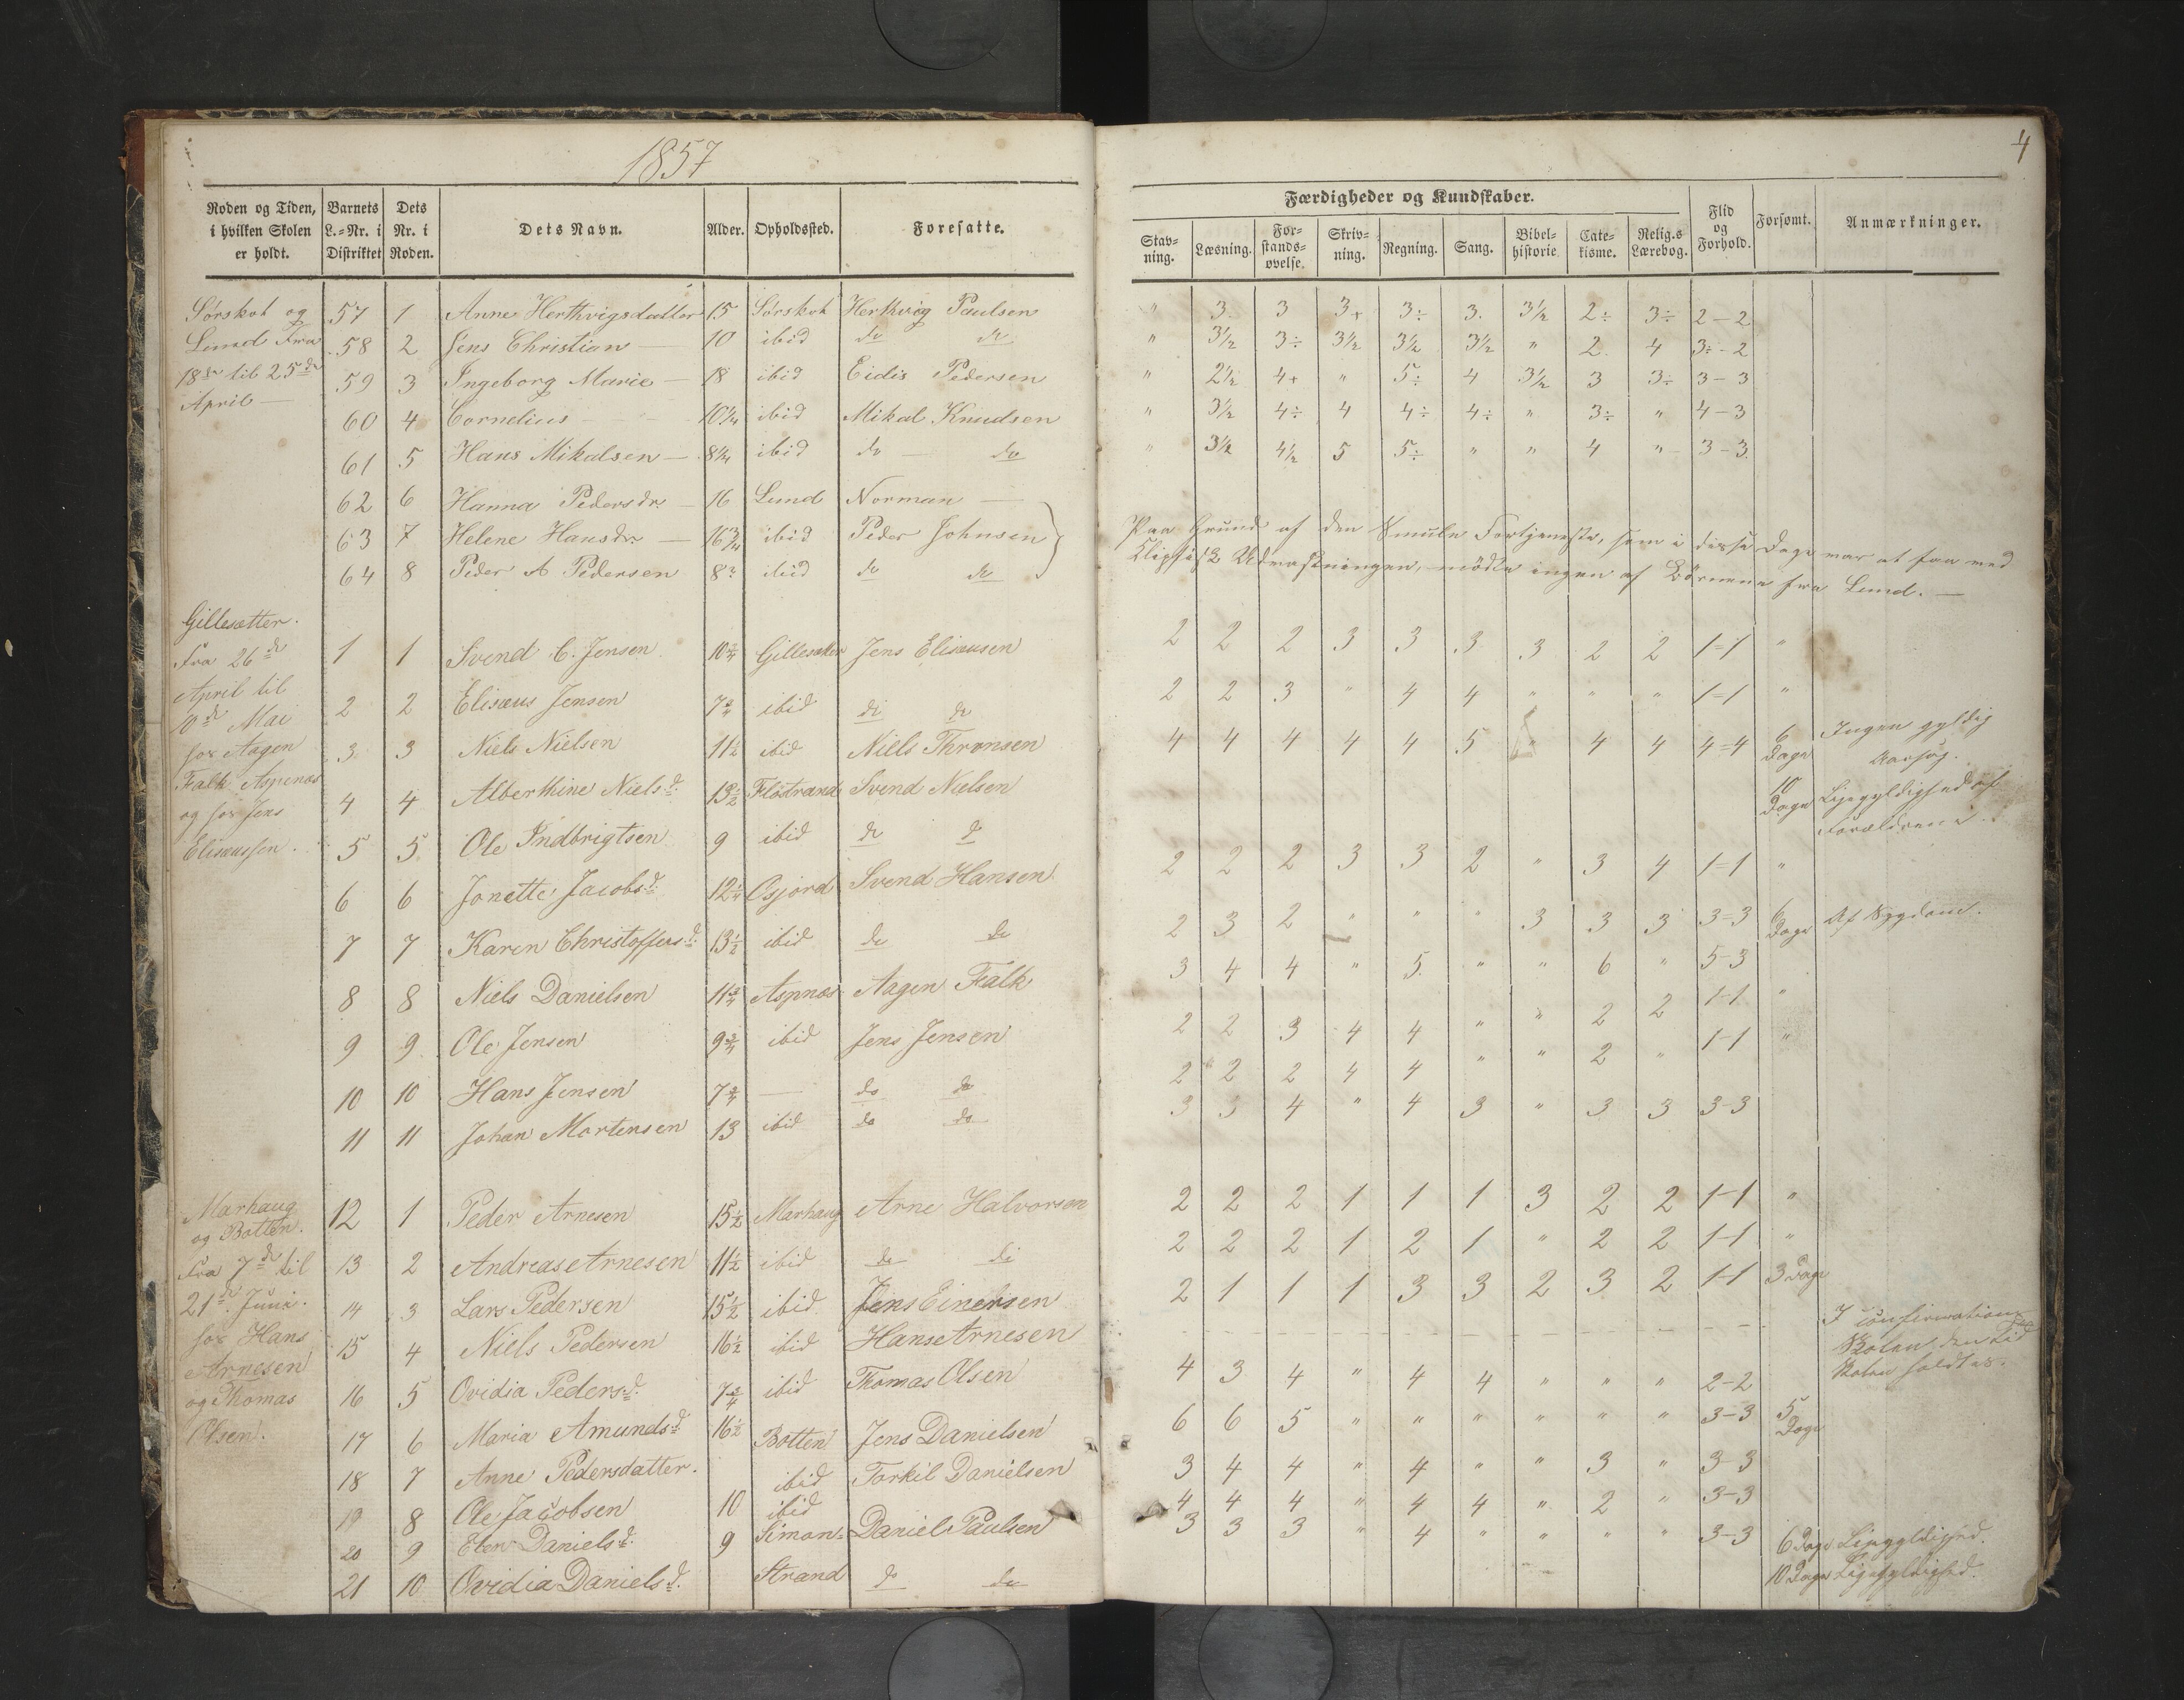 1857
4
Roden og Tiden, i hvilken Skolen er holdt. Barnets L.-Nr. i Distriktet Dets Nr. i Roden. Dets Navn. Alder. Opholdssted. Foresatte.
Færdigheder og Kundskaber.
Stav-ning. Læsning. For-stands-øvelse. Skriv-ning. Regning. Sang. Bibel-historie Cate-kisme. Relig.s Lærebog. Flid og Forhold. Forsømt. Anmærkninger.
Sörskot og Lund Fra 18de til 25de April —
57 1 Anne Herthvigsdatter 15 Sörskot Herthvig Paulsen " 3. 3 3+ 3÷ 3. 3½ 2÷ 3÷ 2-2
58 2 Jens Christian — 10 ibid do do " 3½ 3÷ 3½ 3½ 3½ " 2. 4 3÷-2
59 3 Ingeborg Marie — 18 ibid Eidis Pedersen " 2½ 4+ " 5÷ 4 3½ 3 3÷ 3-3
60 4 Cornelius — 10¼ ibid Mikal Knudsen " 3½ 4÷ 4 4÷ 4÷ " 3÷ " 4-3
61 5 Hans Mikalsen — 8¾ ibid do — do " 3½ 4½ 5 5÷ " " 4 " 3-3.
62 6 Hanna Pedersdr. — 16 Lund Norman —
63 7 Helene Hansdr. — 16¾ ibid Peder Johnsen
64 8 Peder A Pedersen 8 ibid do do
Paa Grund af den Smule Fortjeneste, som i disse Dage var at faa ved
Klipfisk Udvaskningen, mödte ingen af Börnene fra Lund. —
Gillesætter.
Fra 26de April til 10de Mai hos Aagen Falk Aspenæs og hos Jens Elisæussen.
1 1 Svend C. Jensen 10¾ Gillesæter Jens Elisæusen 2 2 2 3 3 3 3 2 2 1=1 "
2 2 Elisæus Jensen 7¾ ibid do do 2 2 3 " 4 4 " " " 1=1 "
3 3 Niels Nielsen 11½ ibid Niels Thronsen 4 4 4 4 4 5 " 4 4 4=4 6 Dage Ingen gyldig Aarsag.
4 4 Alberthine Nielsd. 13½ Flostrand Svend Nielsen 10 Dage Ligegyldighed af Forældrene
5 5 Ole Indbrigtsen 9 ibid do do 2 2 2 3 3 2 " 3 4 1-1 "
6 6 Jonette Jacobsd. 12¼ Osjord Svend Hansen 2 3 2 " " " 3 3 3 3=3 6 Dage Af Sygdom.
7 7 Karen Christoffersd. 13½ ibid do do 3 4 4 " 5 " " 6 " 5-3
8 8 Niels Danielsen 11¾ Aspnæs Aagen Falk 2 2 3 4 4 " " 2 2 1-1 "
9 9 Ole Jensen 9¾ ibid Jens Jensen 2 2 2 4 4 " " 2 " 1-1 "
10 10 Hans Jensen 7¾ — do do 3 3 4 " 4 3 " 3 3 3-3
11 11 Johan Mortensen 13 ibid do do
Marhaug og Botten.
Fra 7de til 21de Juni. hos Hans Arnesen og Thomas Olsen.
12 1 Peder Arnesen 15½ Marhaug Arne Halvorsen 2 2 2 1 1 1 3 2 2 1-1 "
13 2 Andreas Arnesen 11½ ibid do do 2 2 2 1 2 1 " 2 2 1-1 "
14 3 Lars Pedersen 15½ ibid Jens Einersen 2 1 1 1 3 3 2 3 2 1-1 3 Dage
15 4 Niels Pedersen 16½ ibid Hans Arnesen - - - - - - - - - - I confirmations Skolen den tid Skolen holdtes.
16 5 Ovidia Pedersd. 7¾ ibid Thomas Olsen 4 3 4 " 4 4 " " " 2-2
17 6 Maria Amundsd. 16½ Botten Jens Danielsen 6 6 5 " " " " " " 3-3 5 Dage
18 7 Anne Pedersdatter. ibid Torkil Danielsen 3 4 4 " 4 " " 3 " 3-3
19 8 Ole Jacobsen 10 ibid 4 4 4 " 4 4 " 2 " 3-3
20 9 Elen Danielsd. 9 Simon- Daniel Paulsen 3 3 3 " 4 " " " " 3-3 6 Dage Ligegyldighed.
21 10 Ovidia Danielsd. Strand do do 10 Dage Ligegyldighed.